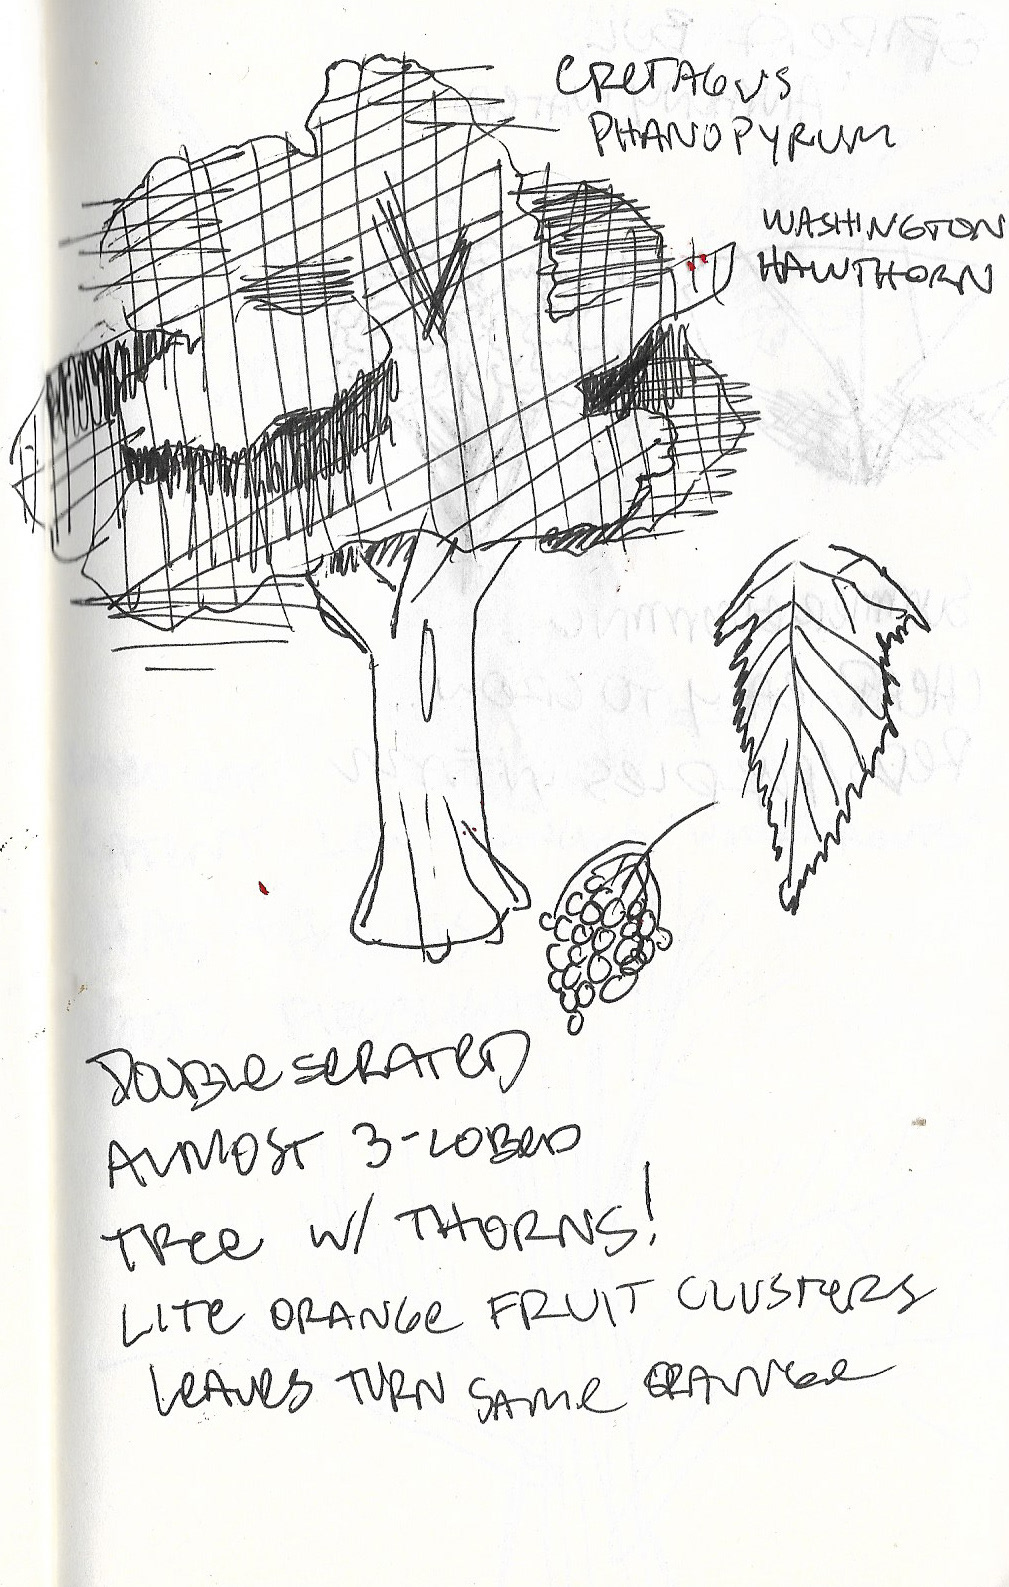 CRETAGUS
PHANOPYRUM
WASHINGTON
HAWTHORN
DOUBLE SERATED
ALMOST 3-LOBED
TREE W/ THORNS!
LITE ORANGE FRUIT CLUSTERS
LEAVES TURN SAME ORANGE